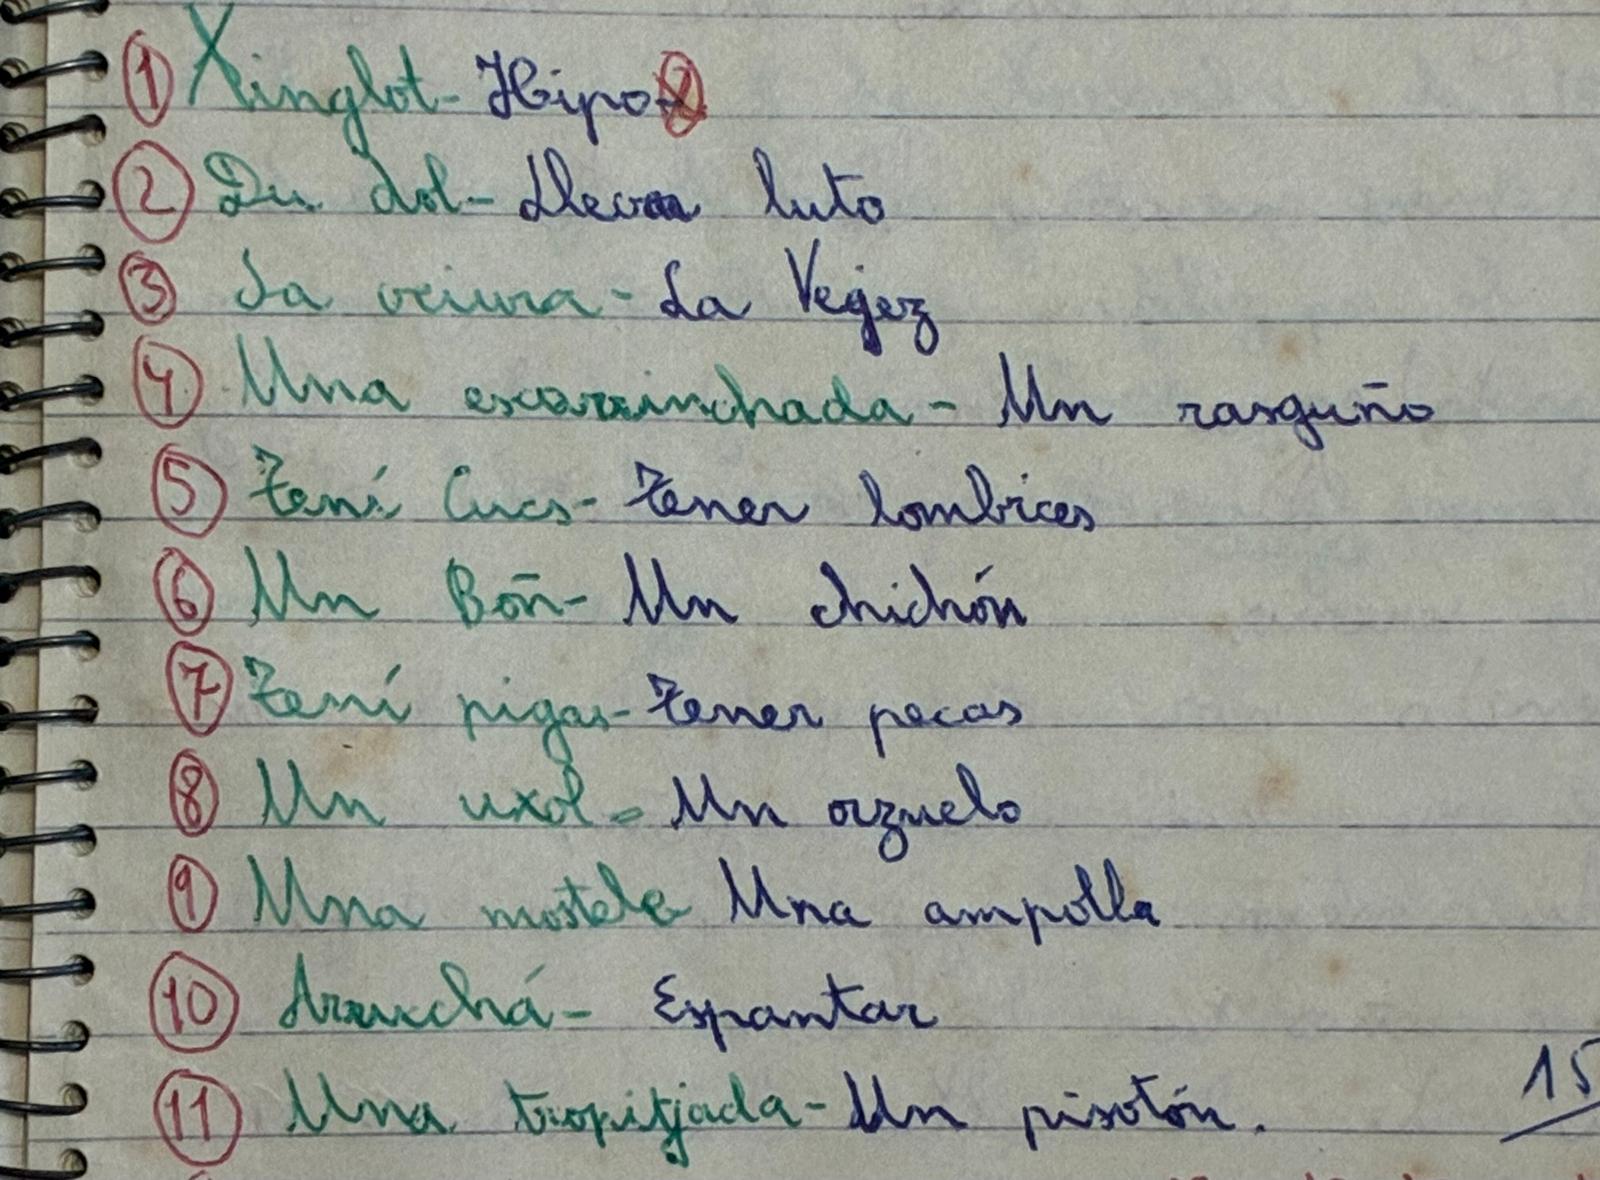 1 Xinglot - Hipo
2 Du dol - Llevar luto
3 Sa veiura - La Vegez
4 Una escarrinchada - Un rasguño
5 Tení Cucs - Tener lombrices
6 Un Boñ - Un chichón
7 Tení pigas - Tener pecas
8 Un uxol - Un orzuelo
9 Una mostela Una ampolla
10 Arruchá - Espantar
11 Una tropitjada - Un pisotón.
15